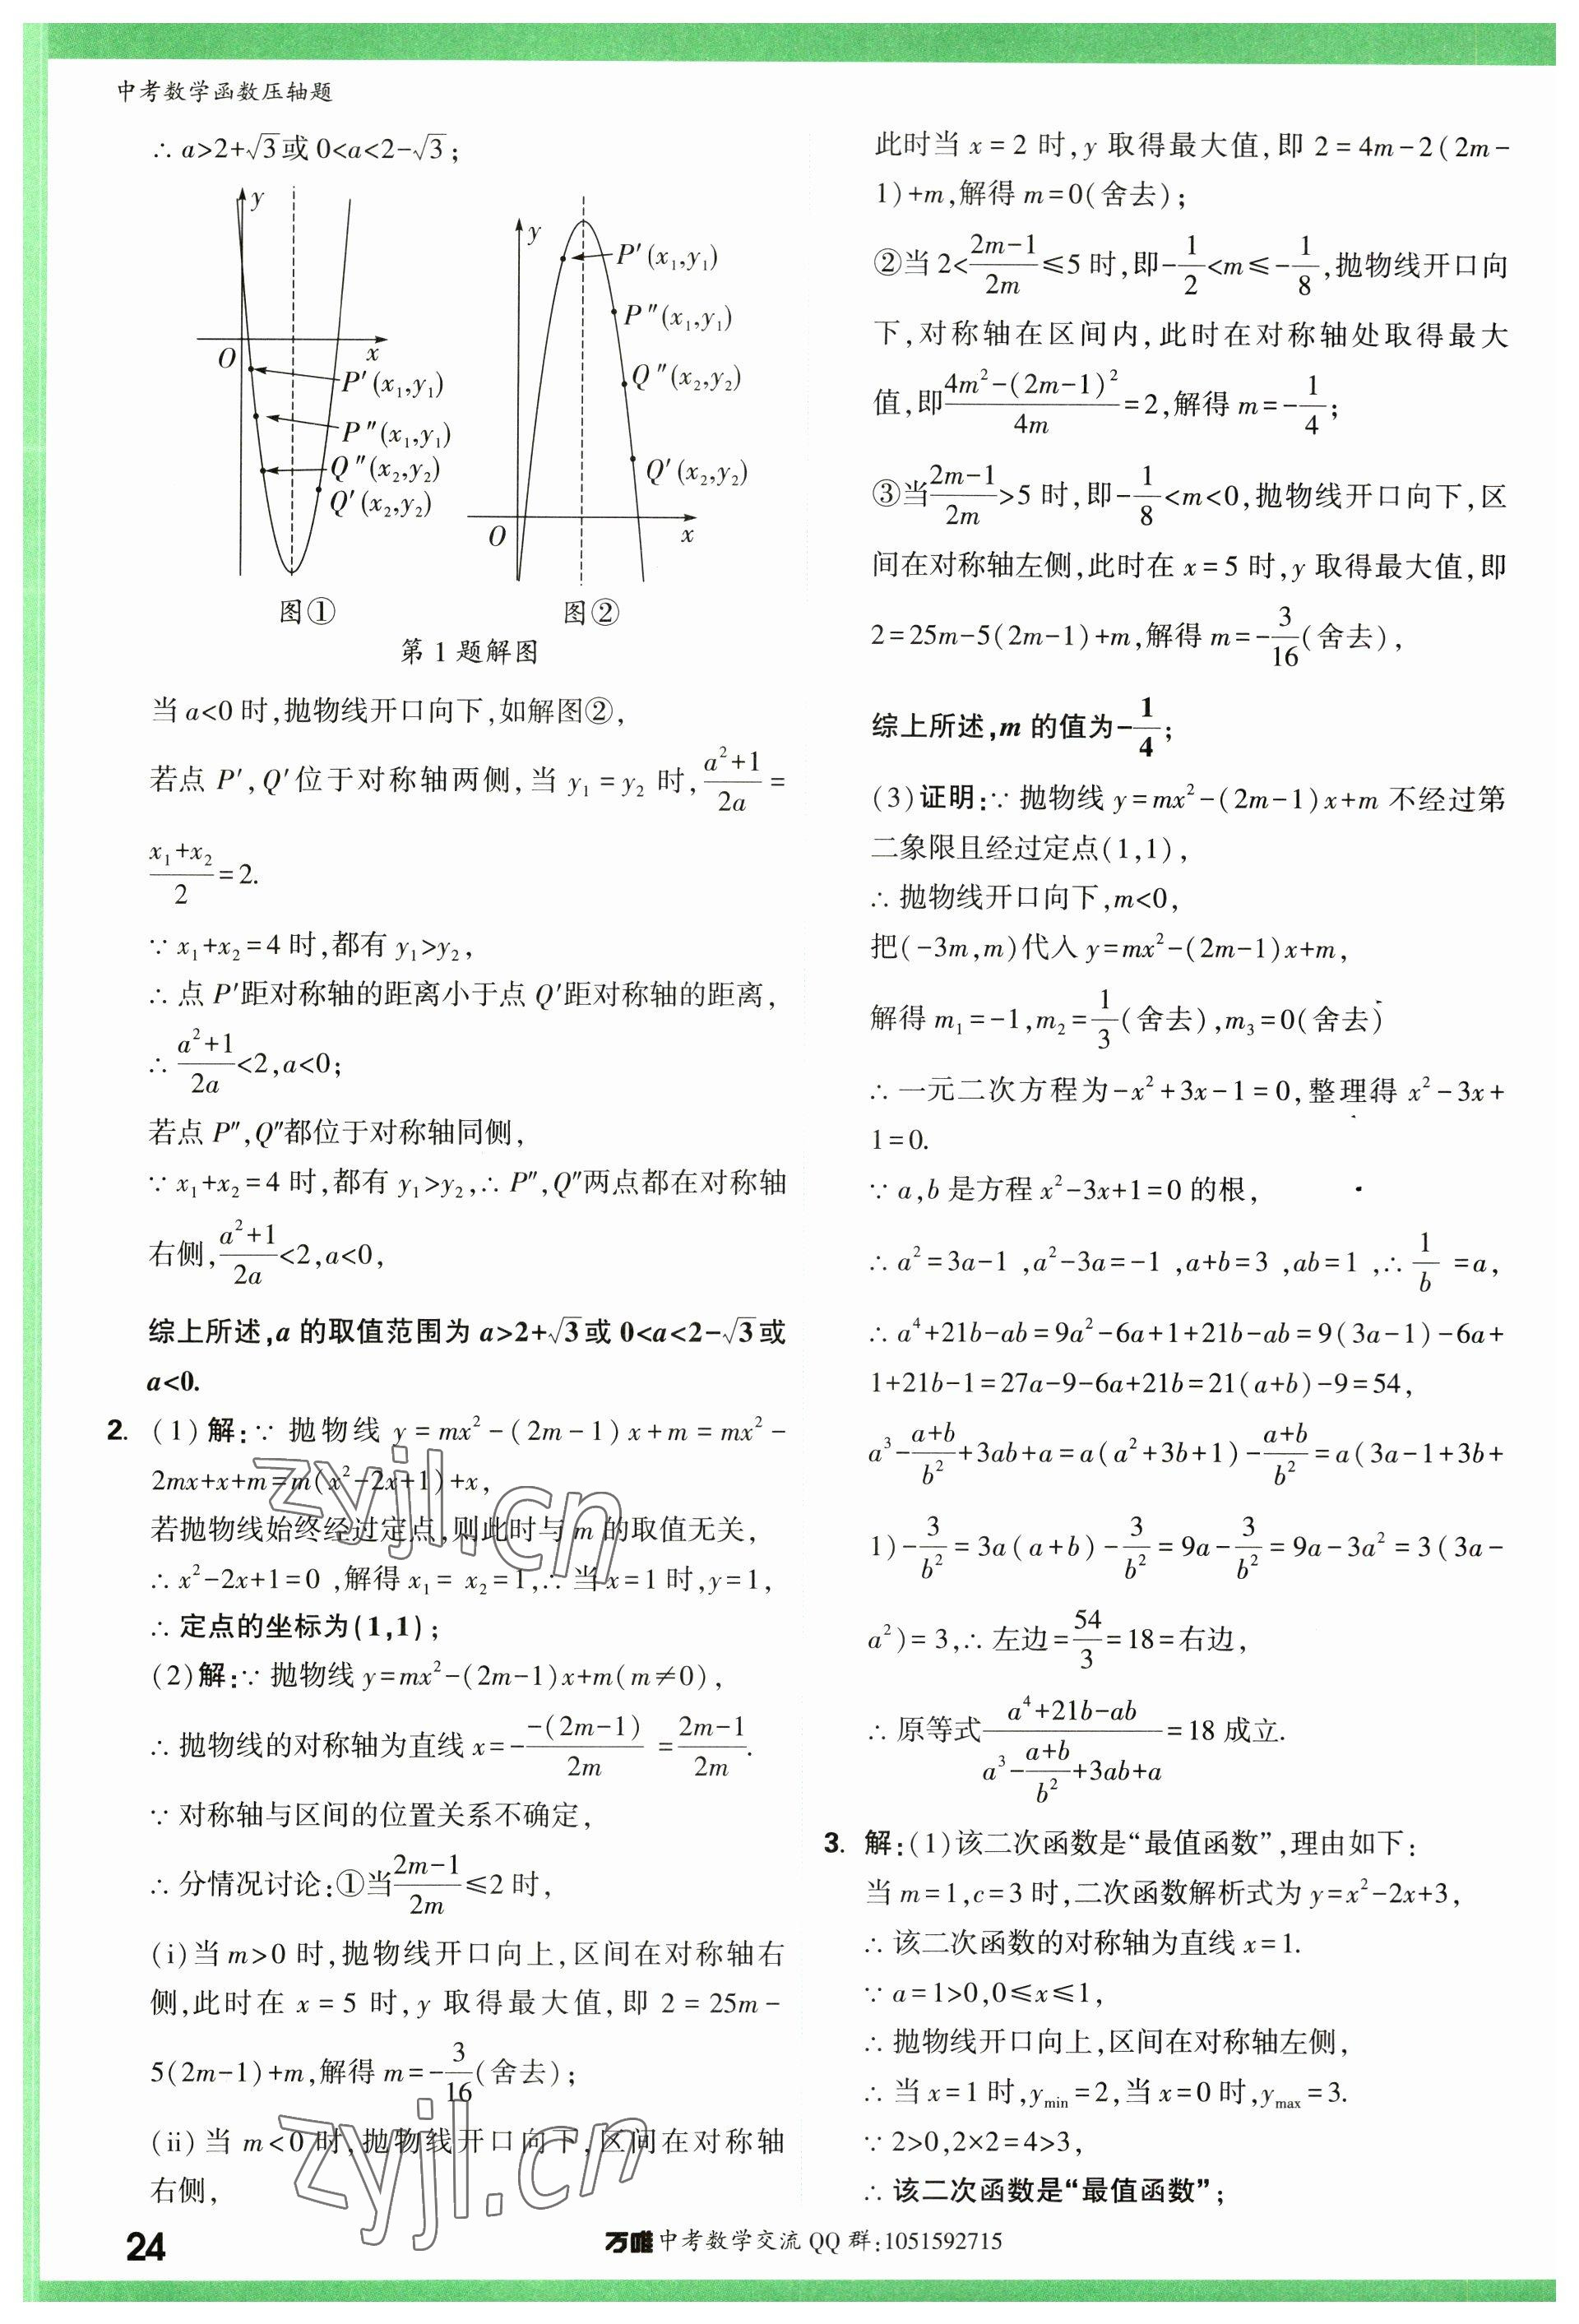 中考数学函数压轴题
∴ a>2+√3或 0<a<2-√3；
y
O
x
P′(x₁,y₁)
P″(x₁,y₁)
Q″(x₂,y₂)
Q′(x₂,y₂)
图①
y
P′(x₁,y₁)
P″(x₁,y₁)
Q″(x₂,y₂)
Q′(x₂,y₂)
O
x
图②
第 1 题解图
当 a<0 时,抛物线开口向下,如解图②,
若点 P′,Q′位于对称轴两侧,当 y₁=y₂ 时,(a²+1)/(2a)=
(x₁+x₂)/2=2.
∵ x₁+x₂=4 时,都有 y₁>y₂,
∴ 点 P′距对称轴的距离小于点 Q′距对称轴的距离,
∴ (a²+1)/(2a)<2,a<0;
若点 P″,Q″都位于对称轴同侧,
∵ x₁+x₂=4 时,都有 y₁>y₂,∴ P″,Q″两点都在对称轴
右侧,(a²+1)/(2a)<2,a<0,
综上所述,a 的取值范围为 a>2+√3或 0<a<2-√3或
a<0.
2. (1)解:∵ 抛物线 y=mx²-(2m-1)x+m=mx²-
2mx+x+m=m(x²-2x+1)+x,
若抛物线始终经过定点,则此时与 m 的取值无关,
∴ x²-2x+1=0 ,解得 x₁= x₂=1,∴ 当 x=1 时,y=1,
∴ 定点的坐标为(1,1);
(2)解:∵ 抛物线 y=mx²-(2m-1)x+m(m≠0),
∴ 抛物线的对称轴为直线 x=-(-(2m-1))/(2m) =(2m-1)/(2m).
∵ 对称轴与区间的位置关系不确定,
∴ 分情况讨论:①当(2m-1)/(2m)≤2 时,
(i)当 m>0 时,抛物线开口向上,区间在对称轴右
侧,此时在 x=5 时,y 取得最大值,即 2=25m-
5(2m-1)+m,解得 m=-3/16(舍去);
(ii)当 m<0 时,抛物线开口向下,区间在对称轴
右侧,
此时当 x=2 时,y 取得最大值,即 2=4m-2(2m-
1)+m,解得 m=0(舍去);
②当 2<(2m-1)/(2m)≤5 时,即-1/2<m≤-1/8,抛物线开口向
下,对称轴在区间内,此时在对称轴处取得最大
值,即(4m²-(2m-1)²)/(4m)=2,解得 m=-1/4;
③当(2m-1)/(2m)>5 时,即-1/8<m<0,抛物线开口向下,区
间在对称轴左侧,此时在 x=5 时,y 取得最大值,即
2=25m-5(2m-1)+m,解得 m=-3/16(舍去),
综上所述,m 的值为-1/4;
(3)证明:∵ 抛物线 y=mx²-(2m-1)x+m 不经过第
二象限且经过定点(1,1),
∴ 抛物线开口向下,m<0,
把(-3m,m)代入 y=mx²-(2m-1)x+m,
解得 m₁=-1,m₂=1/3(舍去),m₃=0(舍去)
∴ 一元二次方程为-x²+3x-1=0,整理得 x²-3x+
1=0.
∵ a,b 是方程 x²-3x+1=0 的根,
∴ a²=3a-1 ,a²-3a=-1 ,a+b=3 ,ab=1 ,∴ 1/b =a,
∴ a⁴+21b-ab=9a²-6a+1+21b-ab=9(3a-1)-6a+
1+21b-1=27a-9-6a+21b=21(a+b)-9=54,
a³-(a+b)/b²+3ab+a=a(a²+3b+1)-(a+b)/b²=a(3a-1+3b+
1)-3/b²=3a(a+b)-3/b²=9a-3/b²=9a-3a²=3(3a-
a²)=3,∴ 左边=54/3=18=右边,
∴ 原等式(a⁴+21b-ab)/(a³-(a+b)/b²+3ab+a)=18 成立.
3. 解:(1)该二次函数是“最值函数”,理由如下:
当 m=1,c=3 时,二次函数解析式为 y=x²-2x+3,
∴ 该二次函数的对称轴为直线 x=1.
∵ a=1>0,0≤x≤1,
∴ 抛物线开口向上,区间在对称轴左侧,
∴ 当 x=1 时,y_min=2,当 x=0 时,y_max=3.
∵ 2>0,2×2=4>3,
∴ 该二次函数是“最值函数”;
zyjl.cn
zyjl.cn
24
万唯中考数学交流 QQ 群:1051592715